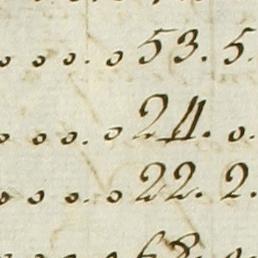 o o o. o 53. 5.
o o o. o 24. o.
o o o. o 22. 2.